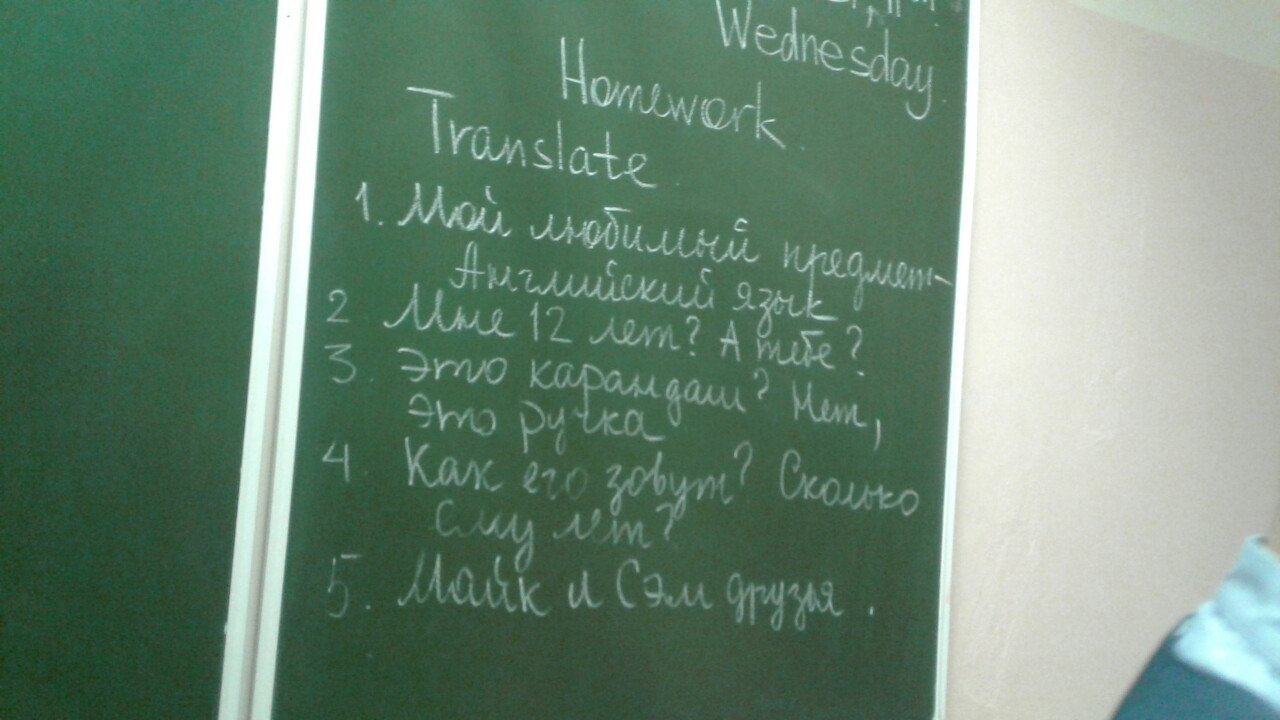 Wednesday.
Homework.
Translate.
1. Мой любимый предмет-
Английский язык
2 Мне 12 лет? А тебе?
3. Это карандаш? Нет,
это ручка
4 Как его зовут? Сколько
ему лет?
5. Майк и Сэм друзья.